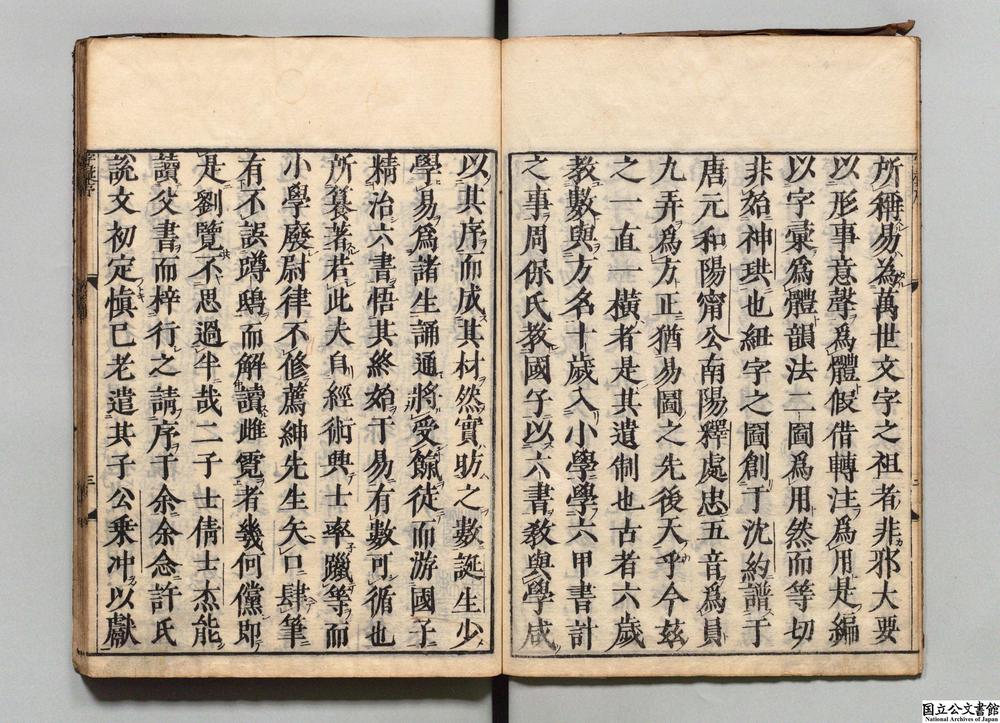 所稱易為萬世文字之祖者非邪大要
以形事意聲爲體假借轉注爲用是編
以字彙爲體韻法二圖爲用然而等切
非始神珙也紐字之圖創于沈約譜于
唐元和陽甯公南陽釋處忠五音爲員
九弄爲方正猶易圖之先後天乎今兹
之一直一横者是其遺制也古者六歲
教數與方名十歲入小學學六甲書計
之事周保氏教國子以六書教與學咸
以其序而成其材然實昉之數誕生少
學易爲諸生誦通將受餼徒而游國子
精治六書悟其終始于易有數可循也
所纂著若此夫自經術興士率躐等而
小學廢尉律不修薦紳先生矢口肆筆
有不誤蹲鴟而解讀雌霓者幾何儻即
是劉覽不思過半哉二子士倩士杰能
讀父書而梓行之請序于余余念許氏
說文初定愼已老遣其子公乗冲以獻
字彙序
三
国立公文書館
National Archives of Japan